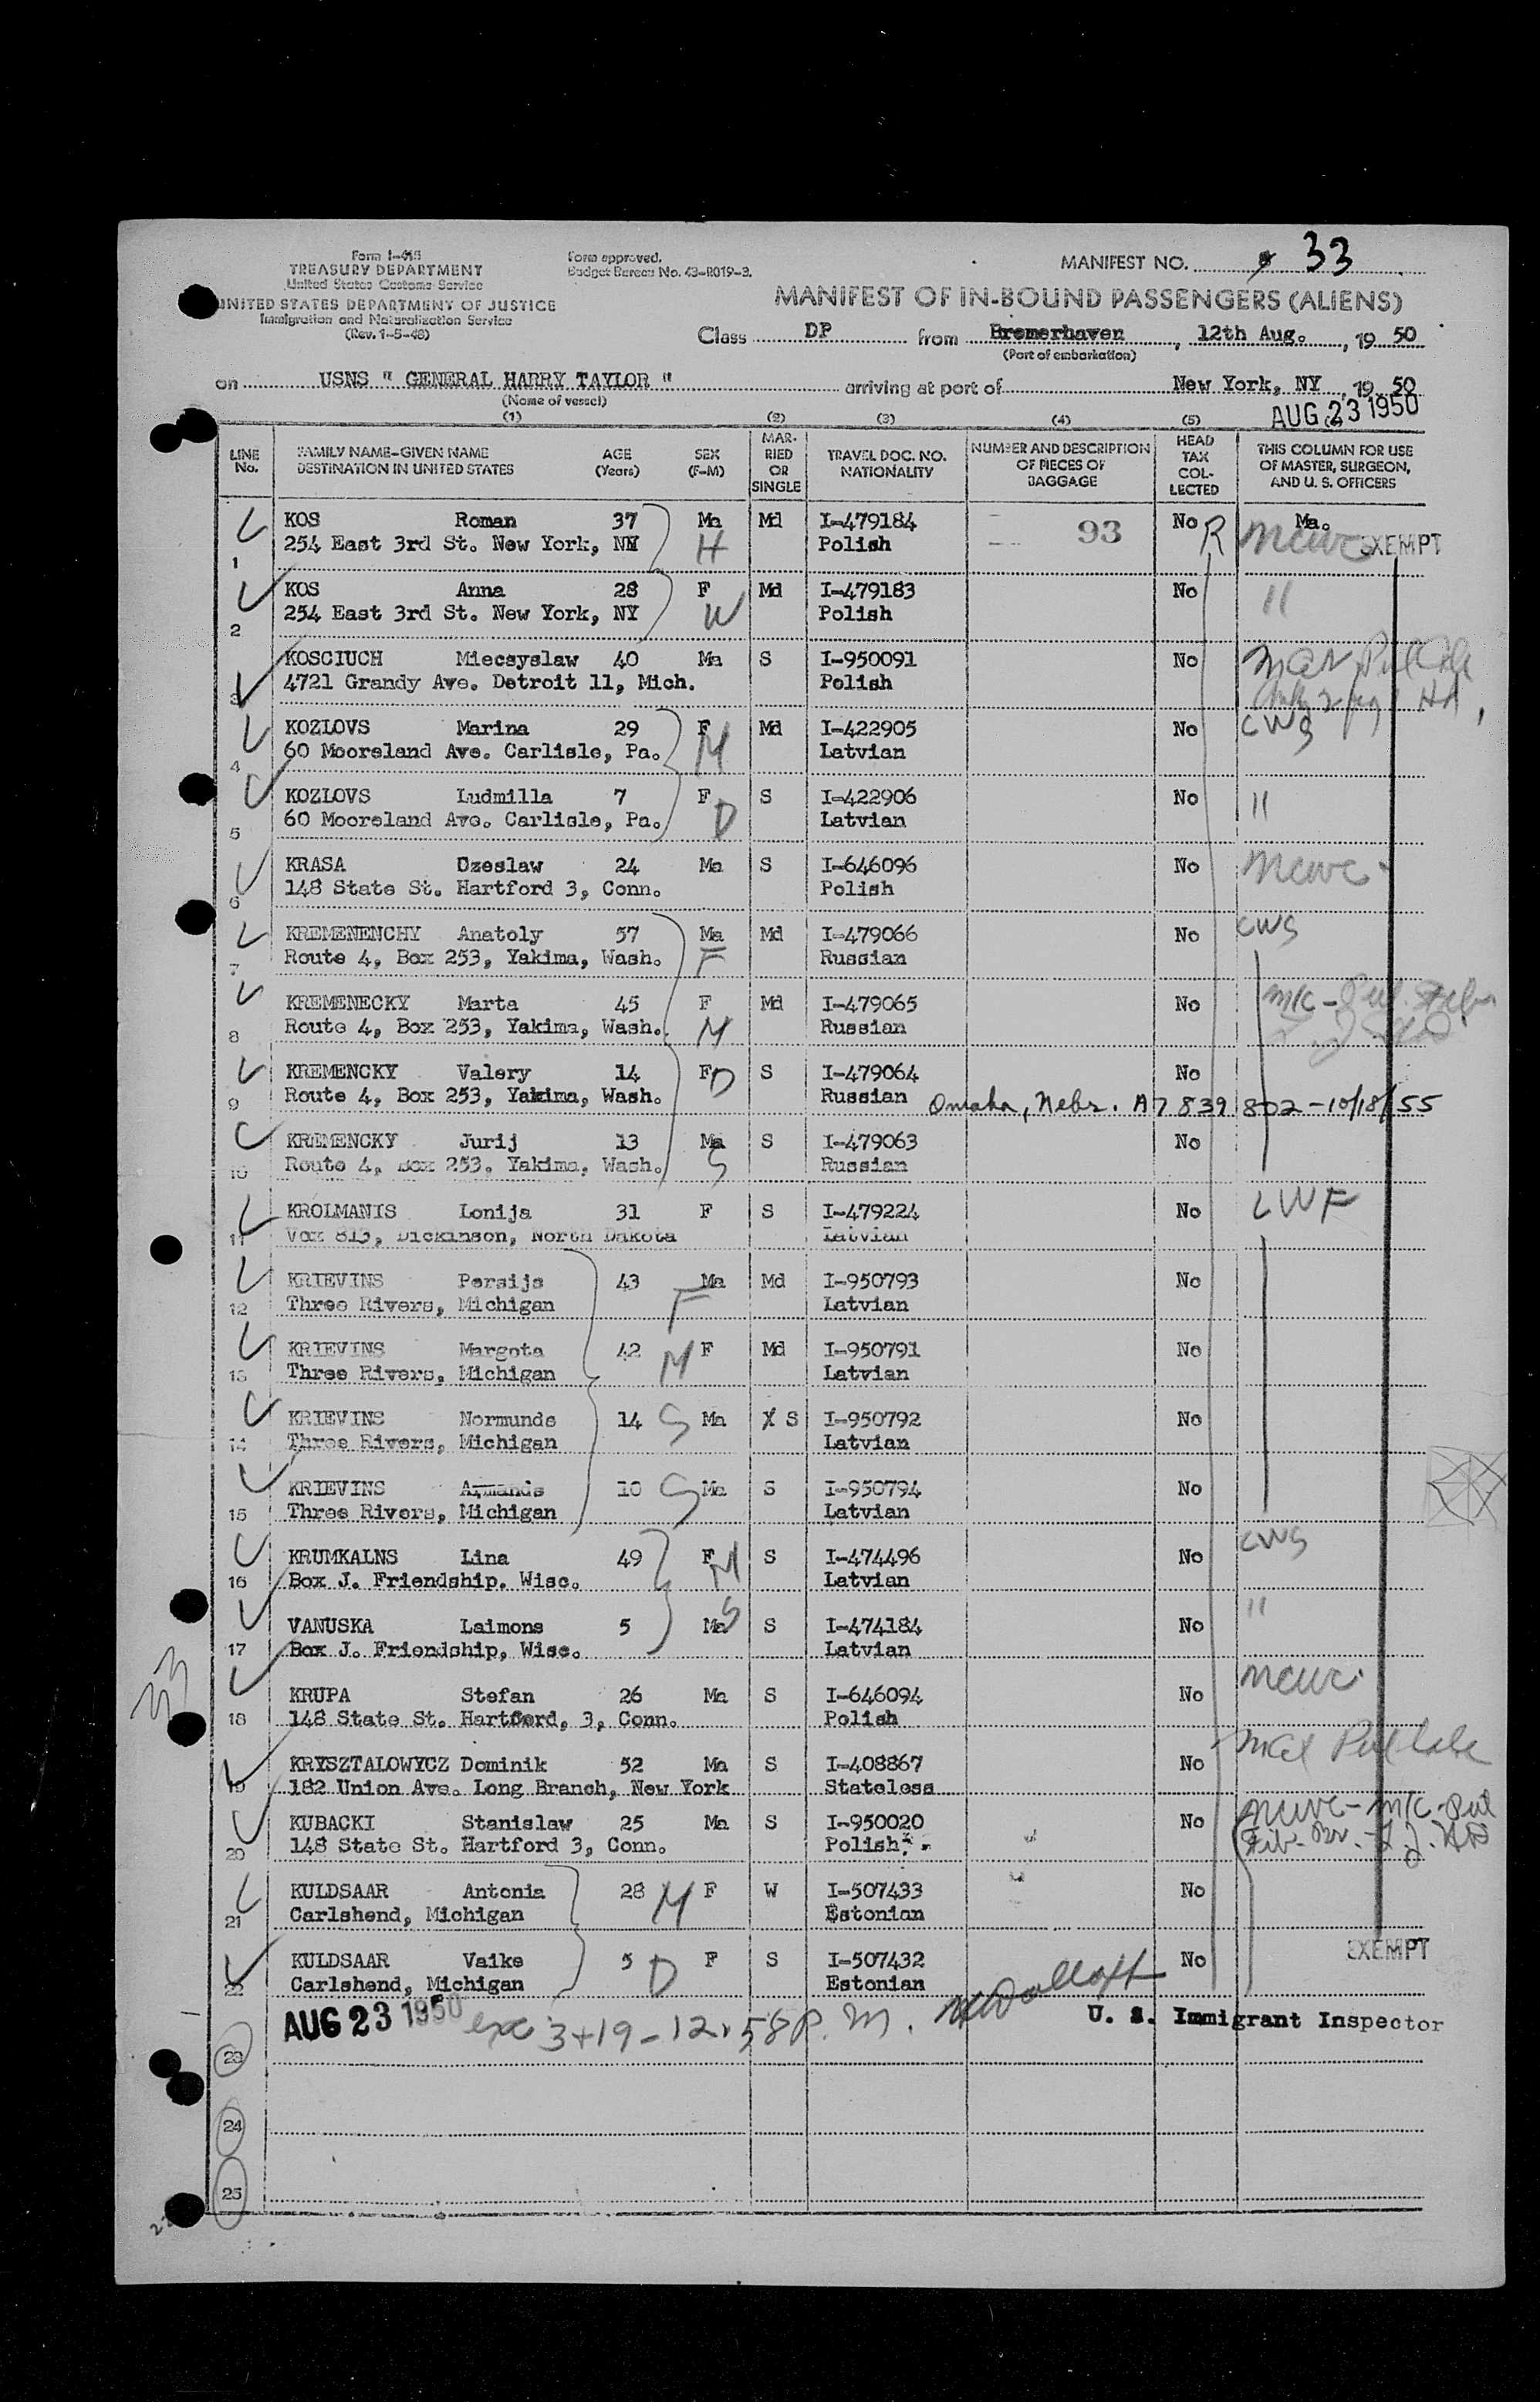 Form I-415
TREASURY DEPARTMENT
United States Customs Service
UNITED STATES DEPARTMENT OF JUSTICE
Immigration and Naturalization Service
(Rev. 1-5-48)
Form approved.
Budget Bureau No. 43-R019-3.
MANIFEST NO. 33
MANIFEST OF IN-BOUND PASSENGERS (ALIENS)
Class DP from Bremerhaven, 12th Aug., 19 50
(Port of embarkation)
on USNS " GENERAL HARRY TAYLOR " arriving at port of New York, NY, 19 50
(Name of vessel)
AUG 23 1950
(1) (2) (3) (4) (5)
LINE No. FAMILY NAME—GIVEN NAME DESTINATION IN UNITED STATES AGE (Years) SEX (F-M) MARRIED OR SINGLE TRAVEL DOC. NO. NATIONALITY NUMBER AND DESCRIPTION OF PIECES OF BAGGAGE HEAD TAX COLLECTED THIS COLUMN FOR USE OF MASTER, SURGEON, AND U. S. OFFICERS
KOS Roman 37 Ma Md I-479184 93 No R Ma. ncwc EXEMPT
1 254 East 3rd St. New York, NY H Polish
KOS Anna 28 F Md I-479183 No "
2 254 East 3rd St. New York, NY W Polish
KOSCIUCH Miecsyslaw 40 Ma S I-950091 No
3 4721 Grandy Ave. Detroit 11, Mich. Polish
KOZLOVS Marina 29 F Md I-422905 No CWS
4 60 Mooreland Ave. Carlisle, Pa. M Latvian
KOZLOVS Ludmilla 7 F S I-422906 No "
5 60 Mooreland Ave. Carlisle, Pa. D Latvian
KRASA Czeslaw 24 Ma S I-646096 No ncwc
6 148 State St. Hartford 3, Conn. Polish
KREMENENCHY Anatoly 57 Ma Md I-479066 No CWS
7 Route 4, Box 253, Yakima, Wash. F Russian
KREMENECKY Marta 45 F Md I-479065 No
8 Route 4, Box 253, Yakima, Wash. M Russian
KREMENCKY Valery 14 F D S I-479064 No
9 Route 4, Box 253, Yakima, Wash. Russian Omaha, Nebr. A7 839 802 - 10/18/55
KREMENCKY Jurij 13 Ma S I-479063 No
10 Route 4, Box 253, Yakima, Wash. S Russian
KROLMANIS Lonija 31 F S I-479224 No LWF
11 Vox 813, Dickinson, North Dakota Latvian
KRIEVINS Persijs 43 Ma Md I-950793 No
12 Three Rivers, Michigan F Latvian
KRIEVINS Margota 42 M F Md I-950791 No
13 Three Rivers, Michigan Latvian
KRIEVINS Normunds 14 S Ma X S I-950792 No
14 Three Rivers, Michigan Latvian
KRIEVINS Armands 10 S Ma S I-950794 No
15 Three Rivers, Michigan Latvian
KRUMKALNS Lina 49 F S I-474496 No CWS
16 Box J. Friendship, Wisc. M Latvian
VANUSKA Laimons 5 Ma S S I-474184 No "
17 Box J. Friendship, Wisc. Latvian
KRUPA Stefan 26 Ma S I-646094 No ncwc
18 148 State St. Hartford, 3, Conn. Polish
KRYSZTALOWYCZ Dominik 52 Ma S I-408867 No
19 182 Union Ave. Long Branch, New York Stateless
KUBACKI Stanislaw 25 Ma S I-950020 No ncwc
20 148 State St. Hartford 3, Conn. Polish
KULDSAAR Antonia 28 M F W I-507433 No
21 Carlshend, Michigan Estonian
KULDSAAR Vaike 5 D F S I-507432 No EXEMPT
22 Carlshend, Michigan Estonian
AUG 23 1950 exc 3+19 - 12:58 P. M. U. S. Immigrant Inspector
23
24
25
33